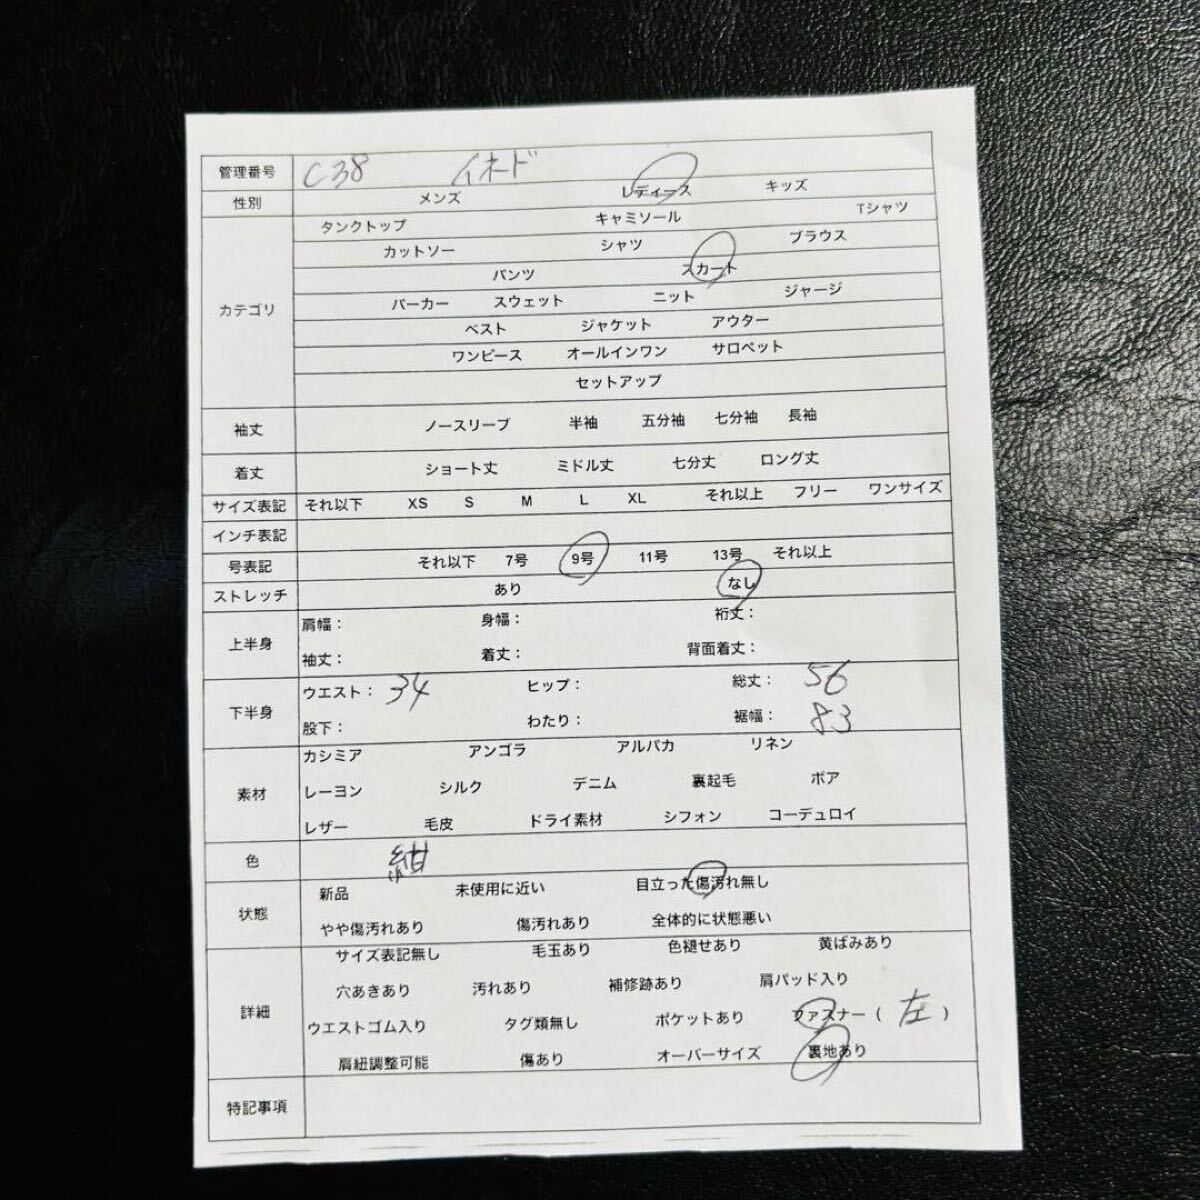 管理番号 C38 イネド
性別 メンズ レディース キッズ
タンクトップ キャミソール Tシャツ
カットソー シャツ ブラウス
パンツ スカート
カテゴリ パーカー スウェット ニット ジャージ
ベスト ジャケット アウター
ワンピース オールインワン サロペット
セットアップ
袖丈 ノースリーブ 半袖 五分袖 七分袖 長袖
着丈 ショート丈 ミドル丈 七分丈 ロング丈
サイズ表記 それ以下 XS S M L XL それ以上 フリー ワンサイズ
インチ表記
号表記 それ以下 7号 9号 11号 13号 それ以上
ストレッチ あり なし
上半身 肩幅： 身幅： 裄丈：
袖丈： 着丈： 背面着丈：
下半身 ウエスト： 34 ヒップ： 総丈： 56
股下： わたり： 裾幅： 83
素材 カシミア アンゴラ アルパカ リネン
レーヨン シルク デニム 裏起毛 ボア
レザー 毛皮 ドライ素材 シフォン コーデュロイ
色 紺
状態 新品 未使用に近い 目立った傷汚れ無し
やや傷汚れあり 傷汚れあり 全体的に状態悪い
詳細 サイズ表記無し 毛玉あり 色褪せあり 黄ばみあり
穴あきあり 汚れあり 補修跡あり 肩パッド入り
ウエストゴム入り タグ類無し ポケットあり ファスナー（ 左 ）
肩紐調整可能 傷あり オーバーサイズ 裏地あり
特記事項